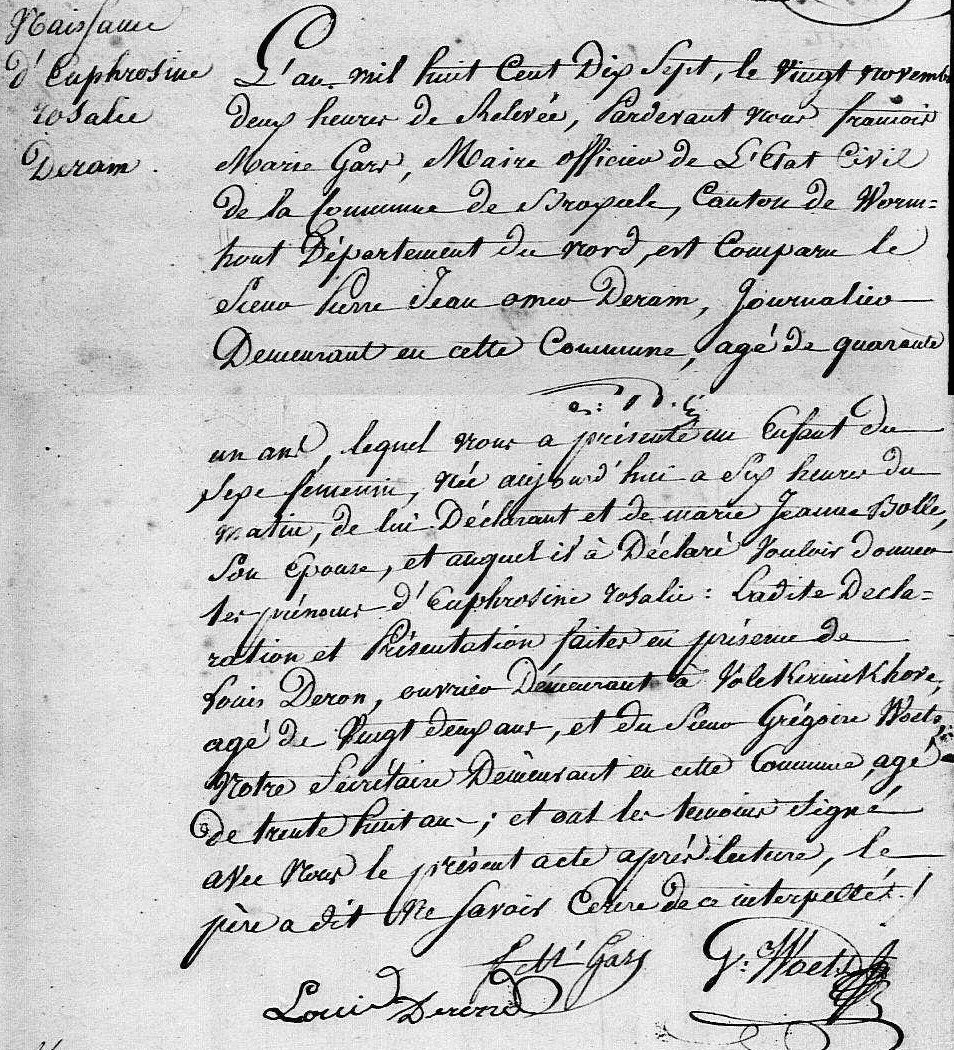 Naissance
d'Euphrosine
rosalie
Deram.
L'an mil huit Cent Dix Sept, le Vingt novembre
deux heures de Relevée, Pardevant nous francois
Marie Gars, Maire officier de L'Etat Civil
de la Commune de Broxeele, Canton de Worm=
hout Département du nord, est Comparu le
Sieur Pierre Jean omer Deram, Journalier
Demeurant en cette Commune, agé de quarante
un ans, lequel nous a présenté un Enfant du
Sexe femenin, née aujourd'hui a Six heures du
matin, de lui Déclarant et de marie Jeanne Bolle,
Son Epouse, et auquel il à Déclaré Vouloir donner
les prénoms d'Euphrosine rosalie: Ladite Decla=
ration et Présentation faites en présence de
Louis Deron, ouvrier Demeurant à Volckerinckhove,
agé de Vingt deux ans, et du Sieur Grégoire Woets,
Notre Secrétaire Demeurant en cette Commune, agé
de trente huit ans; et ont les temoins Signé
avec Nous le présent acte après lecture, le
père a dit Ne Savoir Ecrire de ce interpellé.
f M Gars
G: Woets
Louis Deron